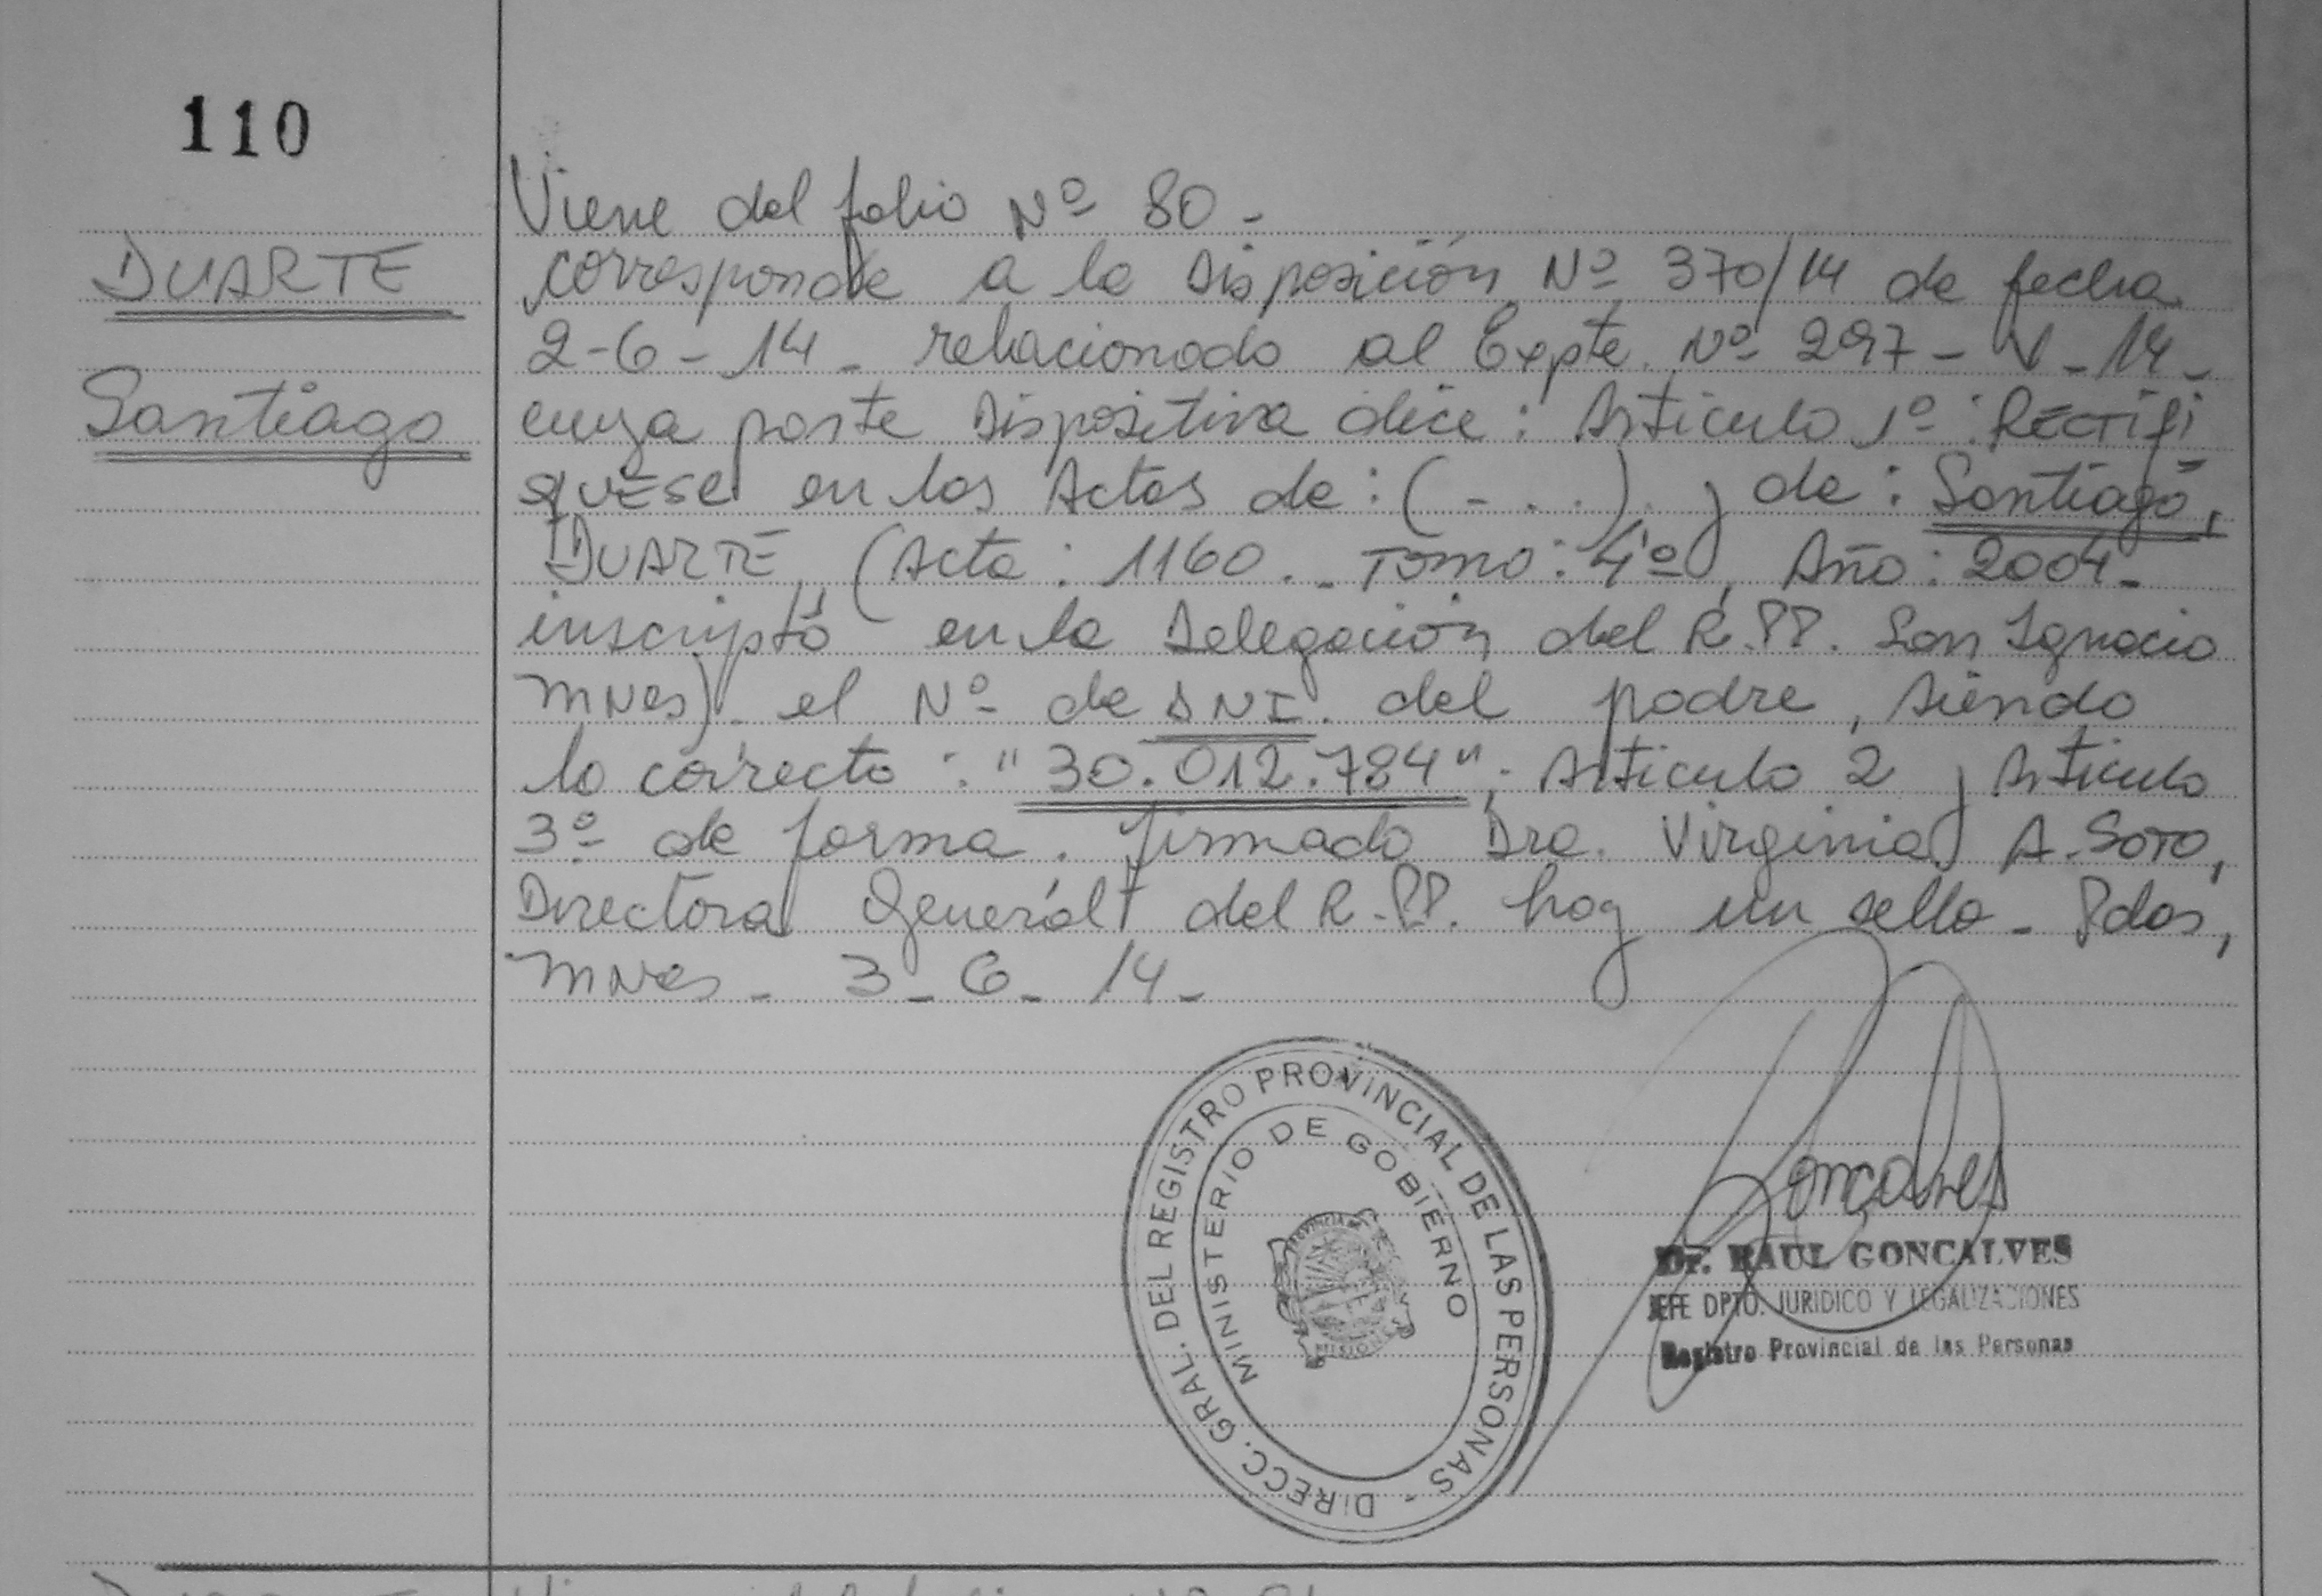 110
DUARTE
Santiago
Viene del folio Nº 80 -
corresponde a la Disposición Nº 370/14 de fecha
2-6-14 - relacionado al Expte. Nº 297 - V - 14 -
cuya parte Dispositiva dice: Articulo 1º: RECTIFI
QUESE en las Actas de: (- . . .) y de: Santiago,
DUARTE, (Acta: 1160. - Tomo: 4º, Año: 2004 -
inscripto en la Delegación del R.PP. San Ignacio
Mnes). el Nº de DNI. del padre, siendo
lo correcto: "30.012.784"; Articulo 2 y Articulo
3º de forma. firmado Dra. Virginia A. SOTO,
Directora General del R.PP. hay un sello - Pdas,
Mnes - 3 - 6 - 14 -
DIRECC. GRAL. DEL REGISTRO PROVINCIAL DE LAS PERSONAS -
MINISTERIO DE GOBIERNO
PROVINCIA DE
MISIONES
Goncalves
Dr. RAUL GONCALVES
JEFE DPTO. JURIDICO Y LEGALIZACIONES
Registro Provincial de las Personas